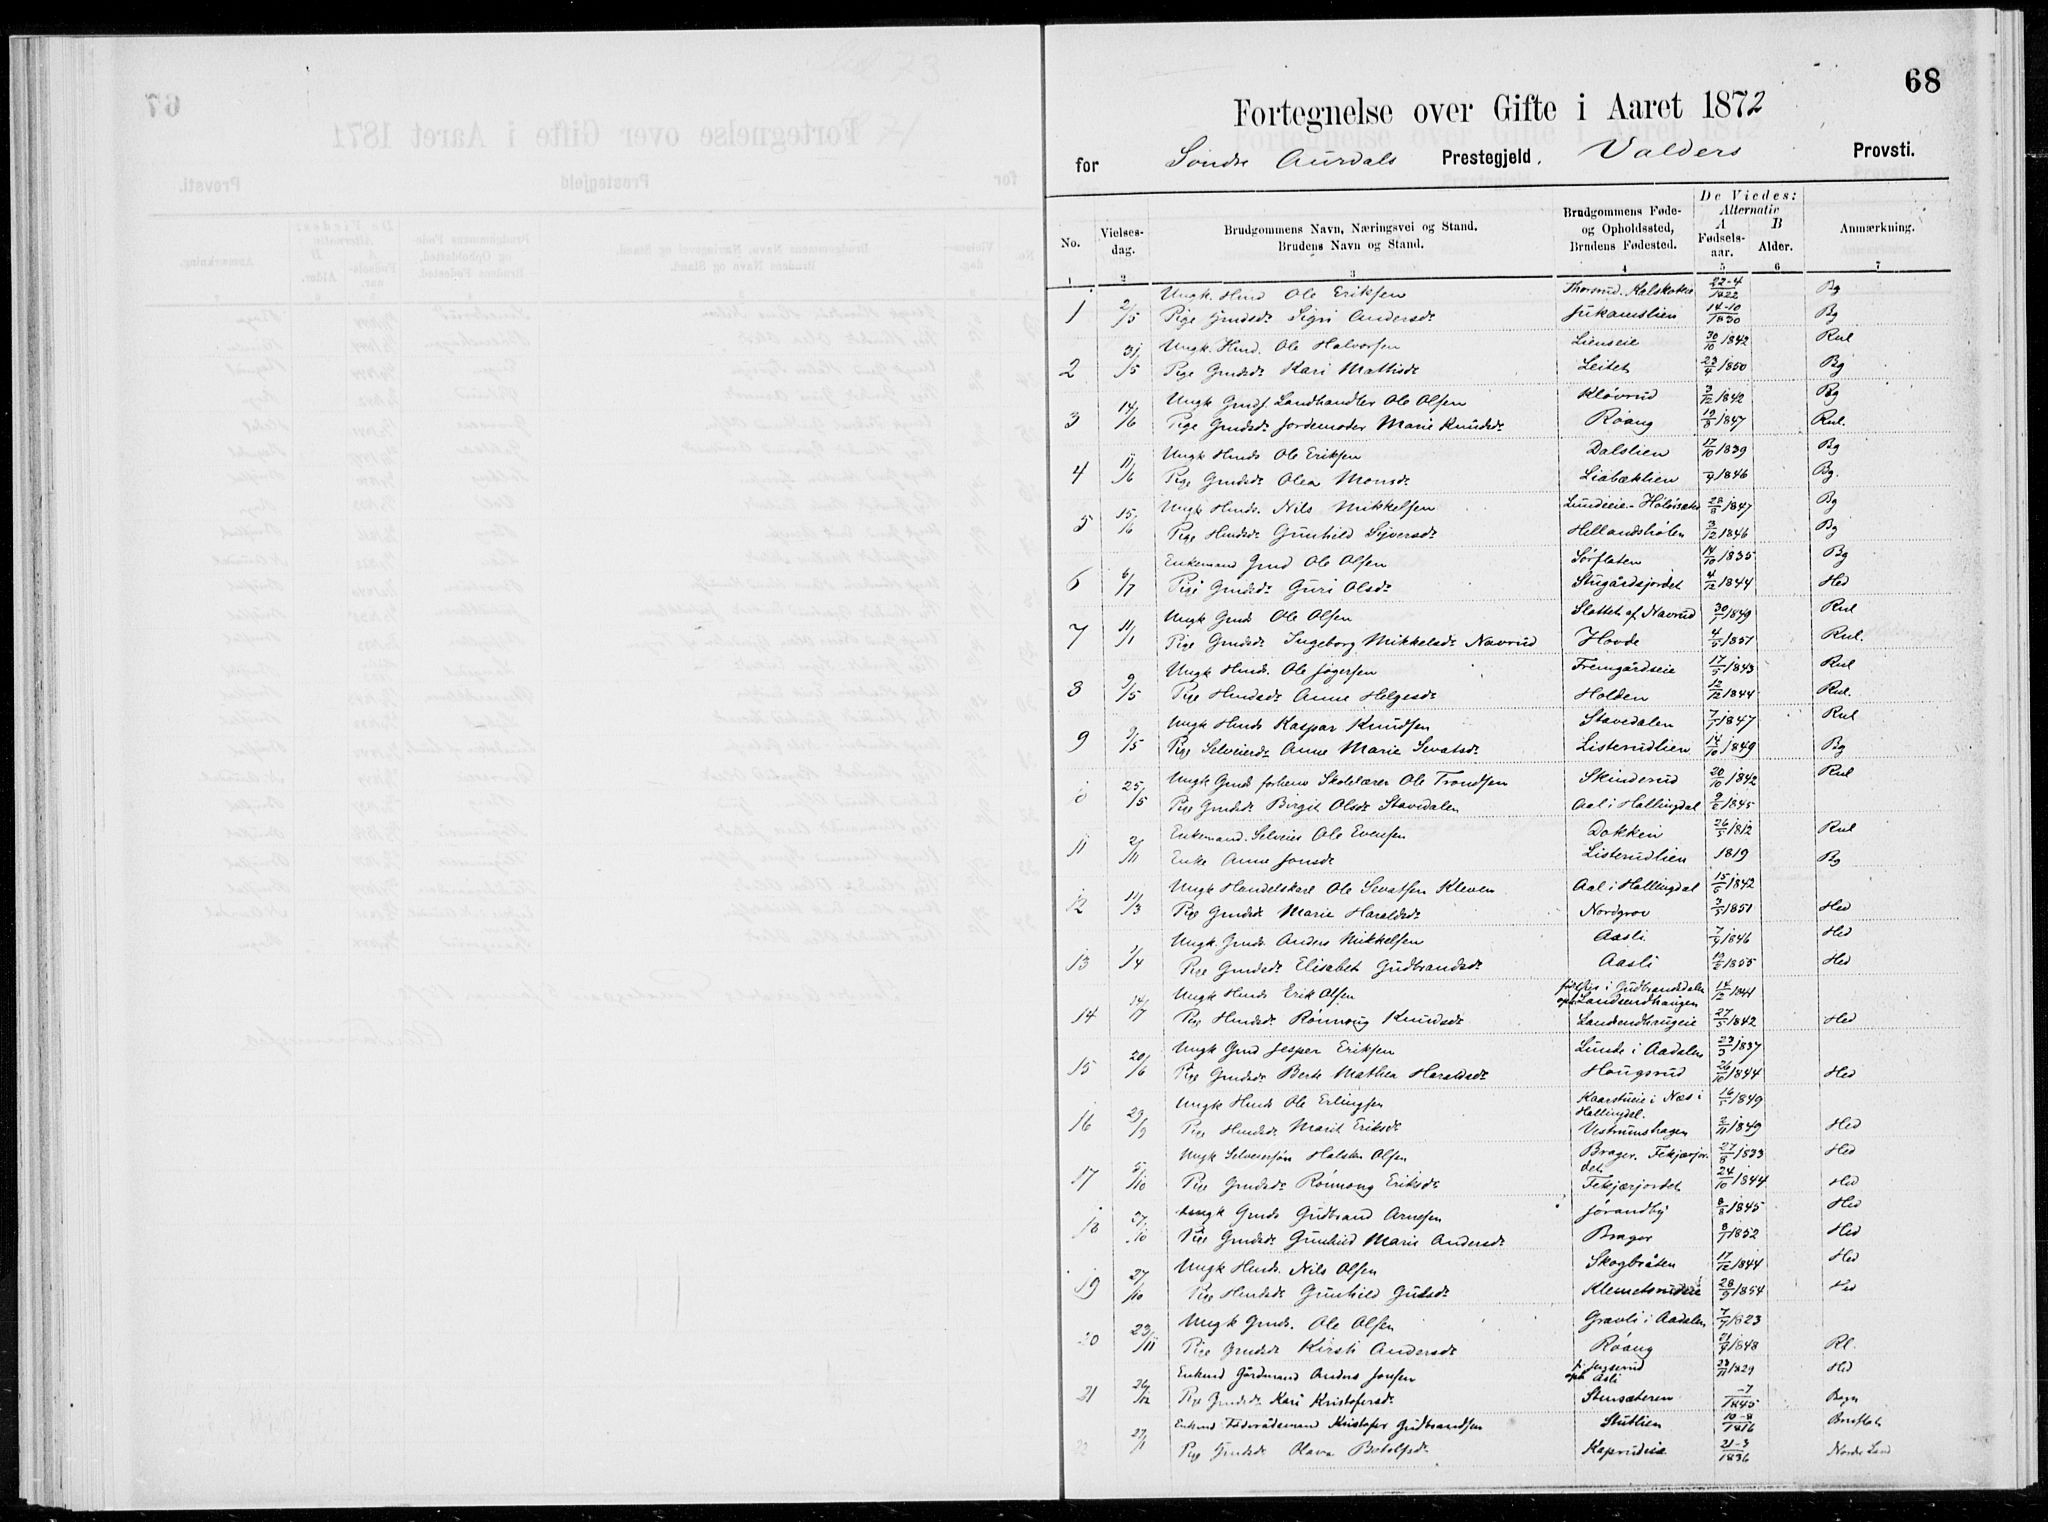 68
Fortegnelse over Gifte i Aaret 1872
for Søndre Aurdals Prestegjeld, Valders Provsti.
No. Vielses-dag. Brudgommens Navn, Næringsvei og Stand. Brudens Navn og Stand. Brudgommens Føde- og Opholdssted, Brudens Fødested. De Viedes: Alternativ A Fødsels-aar. B Alder. Anmærkning.
1 2 3 4 5 6 7
Ungk. Hmd Ole Eriksen Thorsrud. 22-4/1822 Bg
1 2/5 Pige Gmdsdr Sigri Andersdr Jukamslien 14-10/1830 Bg
Ungk. Hmd. Ole Halvorsen Lienseie 30/10 1842 Rul
2 31/5 Pige Gmdsdr Kari Mathisdr Leitet 23/4 1850 Bg
Ungk Gmds. Landhandler Ole Olsen Kløvrud 3/12 1842 Bg
3 14/6 Pige Gmdsdr Jordemoder Marie Knudsdr Røang 19/8 1847 Rul.
Ungk Hmds Ole Eriksen Dalslien 17/10 1839 Bg
4 11/6 Pige Gmdsdr Olea Monsdr Liabæklien /9 1846 Bg.
Ungk Hmds. Nils Mikkelsen Lundeeie- 28/8 1847 Bg
5 15/6 Pige Hmdsdr Gunhild Syversdr Hellandshølen 3/12 1846 Bg
Enkemand Gmd Ole Olsen Sørflaten 14/10 1835 Bg
6 6/7 Pige Gmdsdr Guri Olsdr Stugårdsjordet 4/12 1844 Hed
Ungk Gmds Ole Olsen Slettet af Navrud 30/1 1849 Rul
7 11/1 Pige Gmdsdr Ingeborg Mikkelsdr Navrud Hovde 4/5 1851 Rul.
Ungk Hmds. Ole Jøgersen Fremgårdseie 17/5 1843 Rul
8 9/5 Pige Hmdsdr Anne Helgesdr Holden 12/12 1844 Rul.
Ungk Hmds Kaspar Knudsen Stavedalen 7/1 1847 Rul
9 9/5 Pige Selveierdr Anne Marie Sevatsdr Listerudlien 14/10 1849 Bg
Ungk Gmds forhenv Skolelærer Ole Trondsen Skinderud 20/10 1842 Rul
10 25/5 Pige Gmdsdr Birgit Olsdr Stavedalen Aal i Hallingdal 9/6 1845
Enkemand. Selveier Ole Evensen Dokken 26/5 1812 Rul
11 2/11 Enke Anne Jonsdr Listerudlien 1819 Bg
Ungk Handelskarl Ole Sevatsen Kleven Aal i Hallingdal 15/6 1842
12 11/3 Pige Gmdsdr Marie Haraldsdr Nordgrov 3/5 1851 Hed
Ungk. Gmds. Anders Mikkelsen Aasli 7/9 1846 Hed
13 1/4 Pige Gmdsdr Elisabet Gudbrandsdr Aasli 12/6 1855 Hed
Ungk Hmds Erik Olsen i Gudbrandsdalen oph. Landsendhaugen 14/12 1841
14 14/7 Pige Hmdsdr Rønnaug Knudsdr Landsendhaugeie 27/5 1842 Hed
Ungk Gmd Jesper Eriksen Lunde i Aadalen 23/3 1837
15 20/6 Pige Gmdsdr Berte Mathea Haraldsdr Hougsrud 26/10 1844 Hed
Ungk Hmds Ole Erlingsen Kaarstueie i Næs i Hallingdal. 16/5 1849
16 29/9 Pige Hmdsdr Marit Eriksdr Vestrumshagen 2/11 1849 Hed
Ungk Selveiersøn Halsten Olsen Brager. Fekjærjordet 27/8 1833 Hed
17 5/10 Pige Gmdsdr Rønnaug Eriksdr Fekjærjordet 24/10 1844 Hed
Ungk Gmds Gudbrand Arnesen Jørandby 8/8 1845 Hed
18 27/10 Pige Gmdsdr Gunhild Marie Andersdr Brager 8/1 1852 Hed
Ungk Hmds. Nils Olsen Skogbråten 17/12 1844 Hed
19 27/10 Pige Hmdsdr Gunhild Gulsdr Klemetsrudeie 28/9 1854 Hed
Ungk Gmds. Ole Olsen Gravli i Aadalen 7/7 1823
20 23/11 Pige Gmdsdr Kirsti Andersdr Røang 21/7 1848 Rl.
Enkmd Gårdmand Anders Jonsen oph Asli 23/11 1829 Hed
21 26/12 Pige Gmdsdr Kari Kristofersdr Stensæteren -7/1845 Bagn
Enkmd Føderådsmand Kristofer Gudbrandsen Stublien 10-8/1816 Bruflat
22 27/1 Pige Gmdsdr Olava Botolfsdr Kaprudeie 21-3/1836 Nordre Land